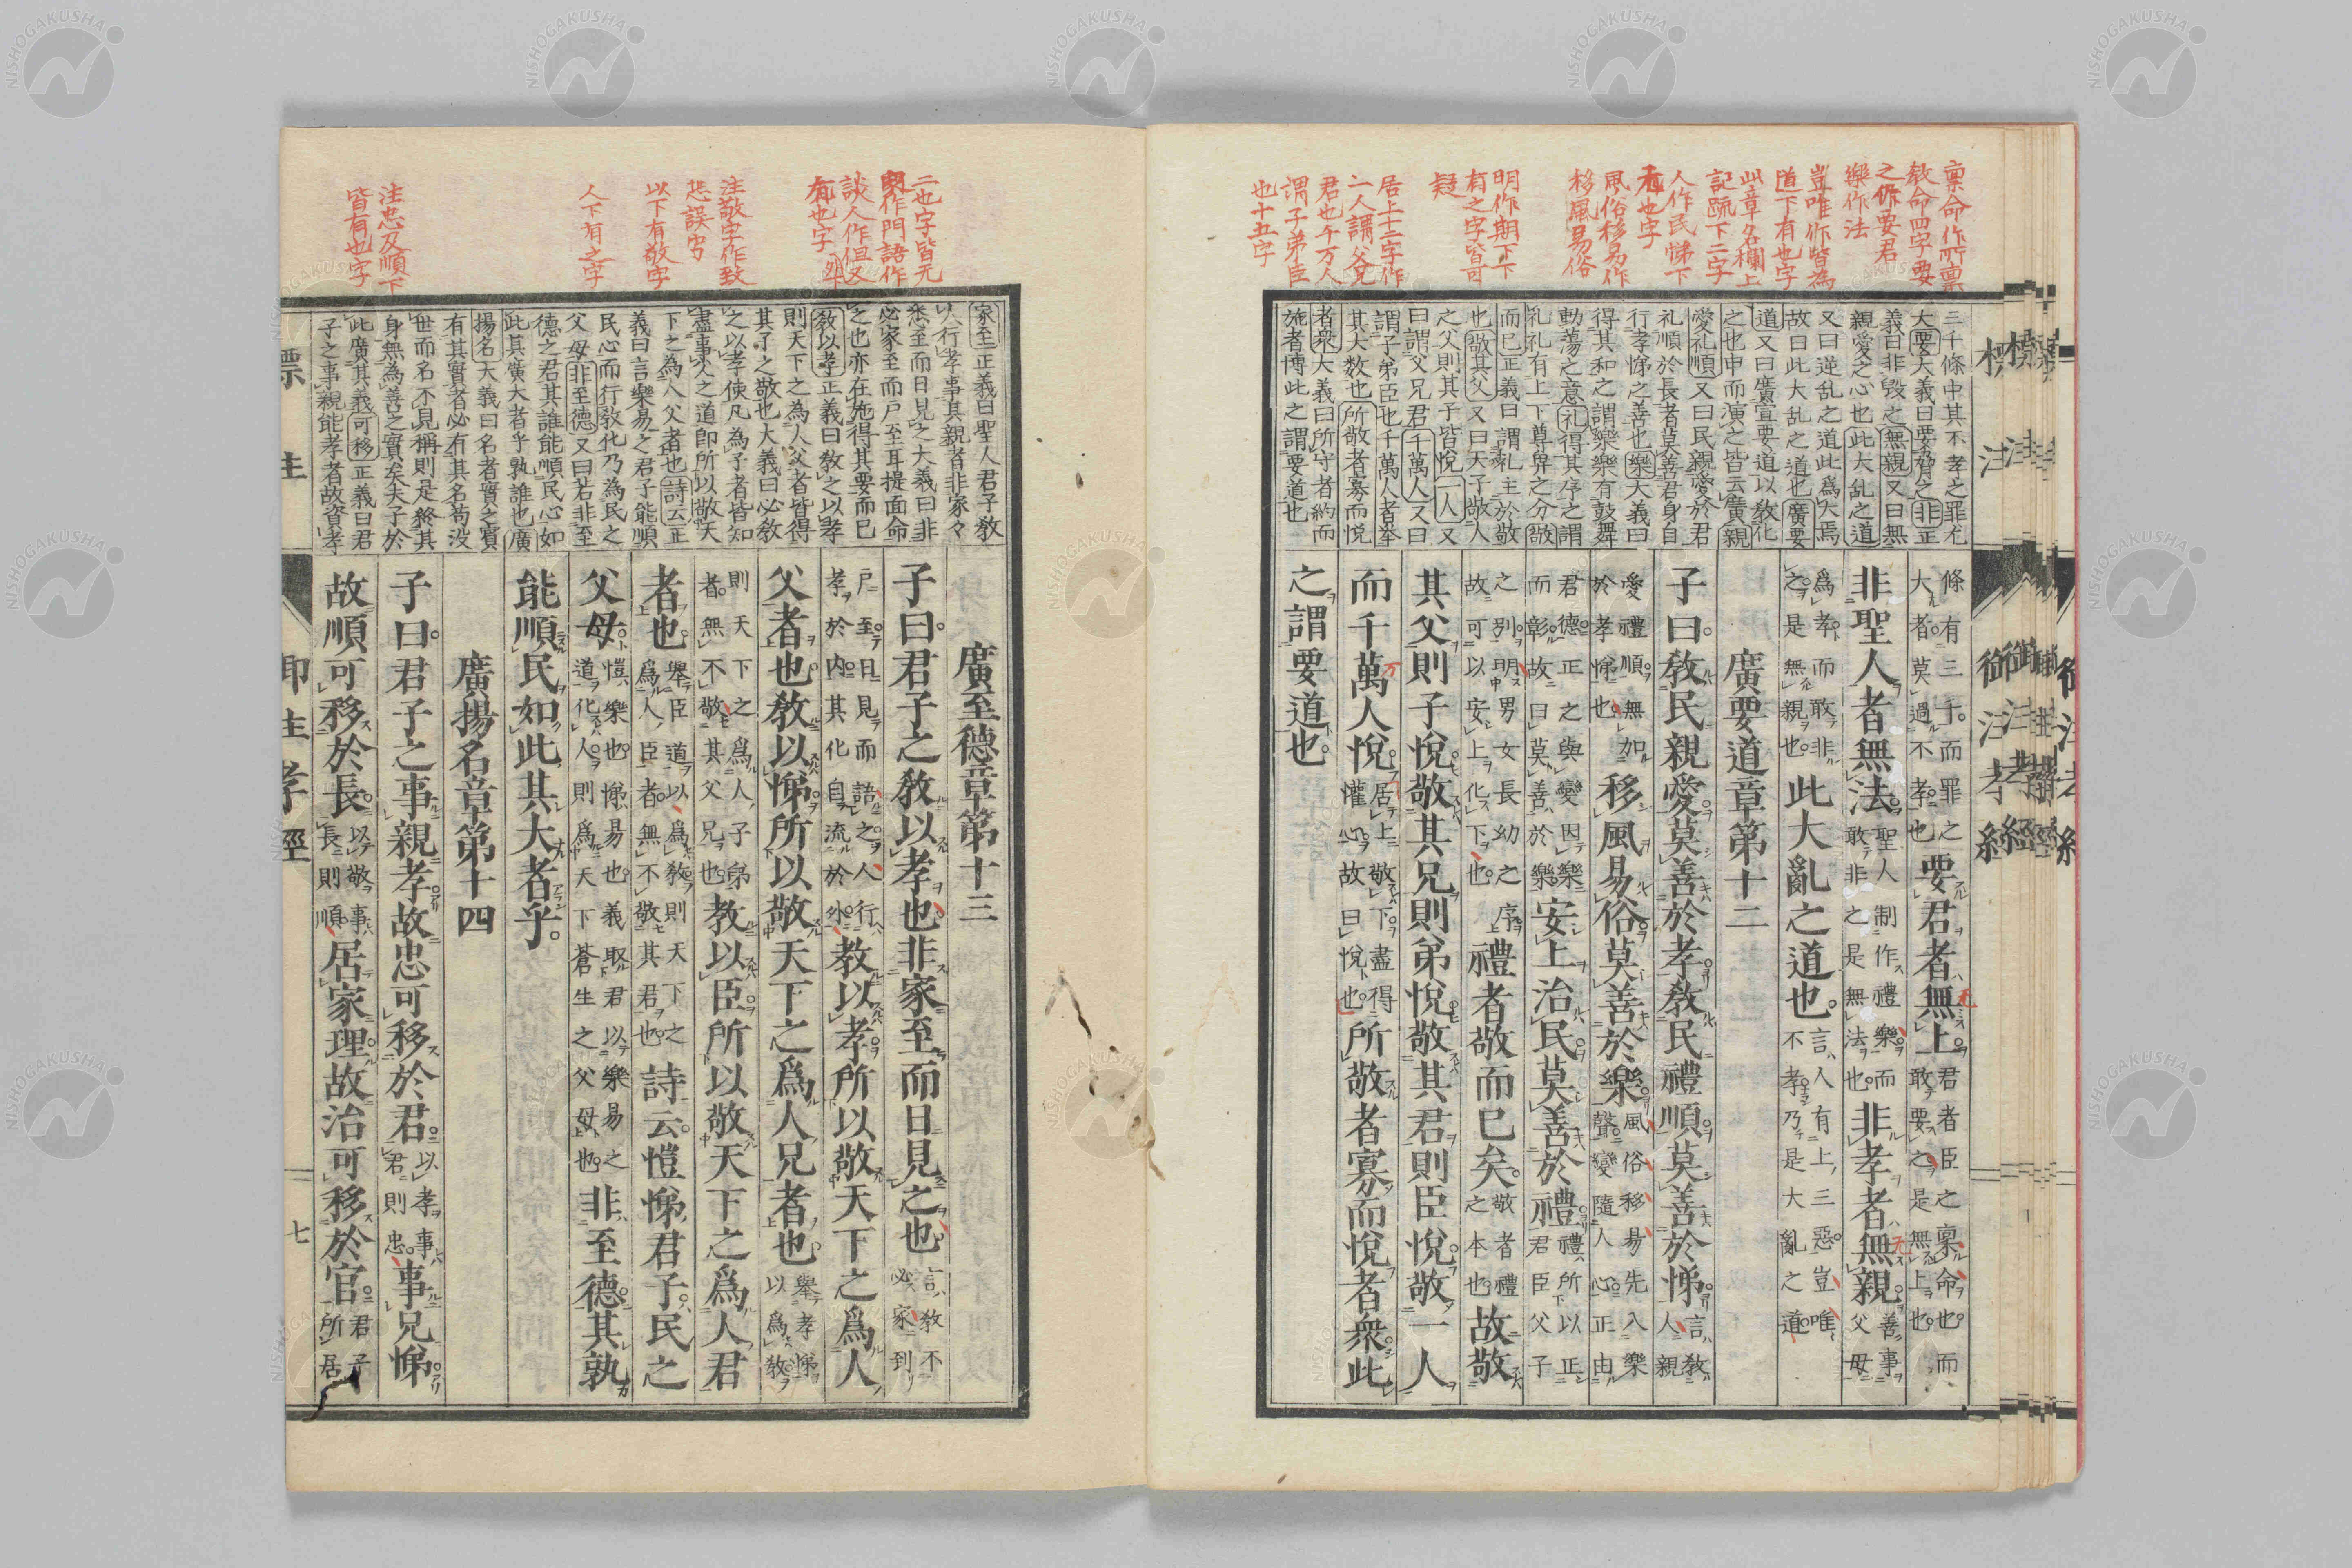 稟命作所稟
教命四字要
之作要君
樂作法
豈唯作皆為
道下有也字
此章名欄上
記疏下二字
人作民悌下
有也字
風俗移易作
移風易俗
明作期下下
有之字皆可
疑
居上十二字作
一人謂父兄
君也千万人
謂子弟臣
也十五字
三千條中其不孝之罪尤
大要大義曰要脅之非正
義曰非毀之無親又曰無
親愛之心也此大乱之道
又曰逆乱之道此為大焉
故曰此大乱之道也廣要
道又曰廣宣要道以敎化
之也申而演之皆云廣親
愛礼順又曰民親愛於君
礼順於長者莫善君身自
行孝悌之善也樂大義曰
得其和之謂樂樂有鼓舞
動蕩之意礼得其序之謂
礼礼有上下尊卑之分敬
而已正義曰謂礼主於敬
也敬其父又曰天子敬人
之父則其子皆悅一人又
曰謂父兄君千萬人又曰
謂子弟臣也千萬人者挙
其大数也所敬者寡而悅
者衆大義曰所守者約而
施者博此之謂要道也
標注 御注孝經
條有三千而罪之大者莫過不孝也要君者無上君者臣之稟命也而敢要之是無上也
非聖人者無法聖人制作禮樂而敢非之是無法也非孝者無親善事父母
爲孝而敢非之是無親也此大亂之道也言人有上三惡豈唯不孝乃是大亂之道
廣要道章第十二
子曰敎民親愛莫善於孝敎民禮順莫善於悌言敎人親
愛禮順無加於孝悌也移風易俗莫善於樂風俗移易先入樂聲變隨人心正由
君德正之與變因樂而彰故曰莫善於樂安上治民莫善於禮禮所以正君臣父子
之別明男女長幼之序故可以安上化下也禮者敬而已矣敬者禮之本也故敬
其父則子悅敬其兄則弟悅敬其君則臣悅敬一人
而千萬人悅居上敬下盡得懽心故曰悅也所敬者寡而悅者衆此
之謂要道也
二也字皆无
作門語作
談人作但又
有也字
注敬字作致
恐誤字
以下有敬字
人下有之字
注忠及順下
皆有也字
家至正義曰聖人君子敎
人行孝事其親者非家々
悉至而日見之大義曰非
必家至而戶至耳提面命
之也亦在施得其要而已
敎以孝正義曰敎之以孝
則天下之為人父者皆得
其子之敬也大義曰必敎
之以孝使凡為子者皆知
盡事父之道即所以敬天
下之為人父者也詩云正
義曰言樂易之君子能順
民心而行敎化乃為民之
父母非至德又曰若非至
德之君其誰能順民心如
此其廣大者乎孰誰也廣
揚名大義曰名者實之賓
有其實者必有其名苟没
世而名不見稱則是終其
身無為善之實矣夫子於
此廣其義可移正義曰君
子之事親能孝者故資孝
廣至德章第十三
子曰君子之敎以孝也非家至而日見之也言敎不必家到
戶至日見而語之人行孝於內其化自流於外敎以孝所以敬天下之爲人
父者也敎以悌所以敬天下之爲人兄者也舉孝悌以爲敎
則天下之爲人子弟者無不敬其父兄也敎以臣所以敬天下之爲人君
者也舉臣道以爲敎則天下之爲人臣者無不敬其君也詩云愷悌君子民之
父母愷樂也悌易也義取君以樂易之道化人則爲天下蒼生之父母也非至德其孰
能順民如此其大者乎
廣揚名章第十四
子曰君子之事親孝故忠可移於君以孝事君則忠事兄悌
故順可移於長以敬事長則順居家理故治可移於官君子所居
標注 御注孝經 七